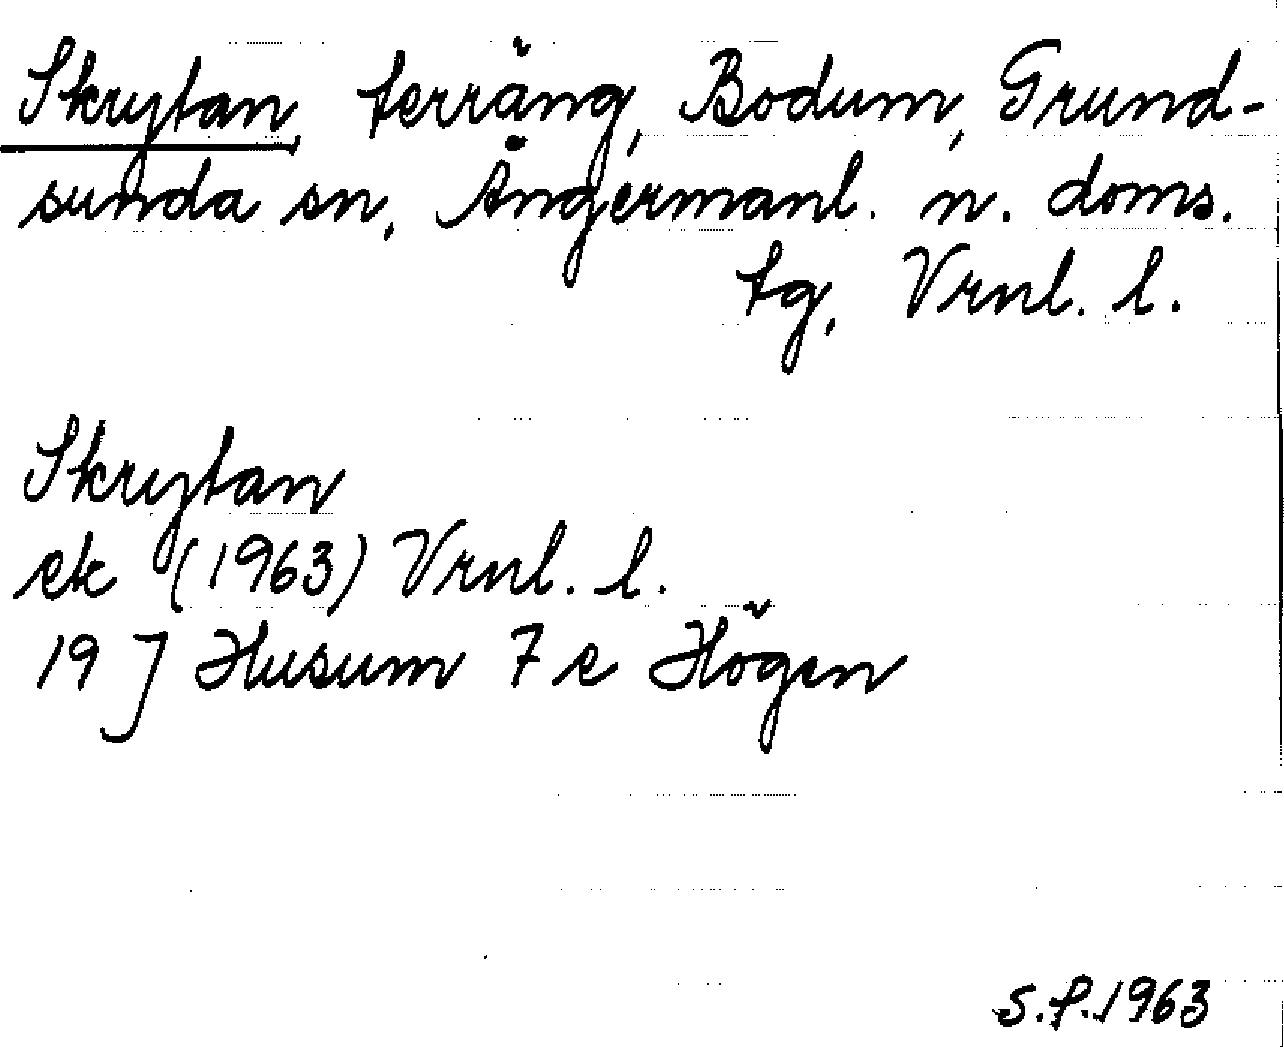 Skrytan, terräng, Bodum, Grund-
sunda sn, Ångermanl. n. doms.
tg, Vrnl. l.
Skrytan
ek (1963) Vrnl. l.
19 J Husum 7 e Högen
S.P.1963